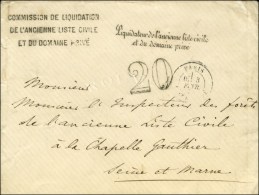 COMMISSION DE LIQUIDATION
DE L'ANCIENNE LISTE CIVILE
ET DU DOMAINE PRIVÉ
Liquidateur de l'ancienne liste civile
et du domaine privé
20
PARIS
Monsieur
Monsieur l'Inspecteur des forêts
de l'ancienne Liste Civile
à la Chapelle Gauthier
Seine et Marne